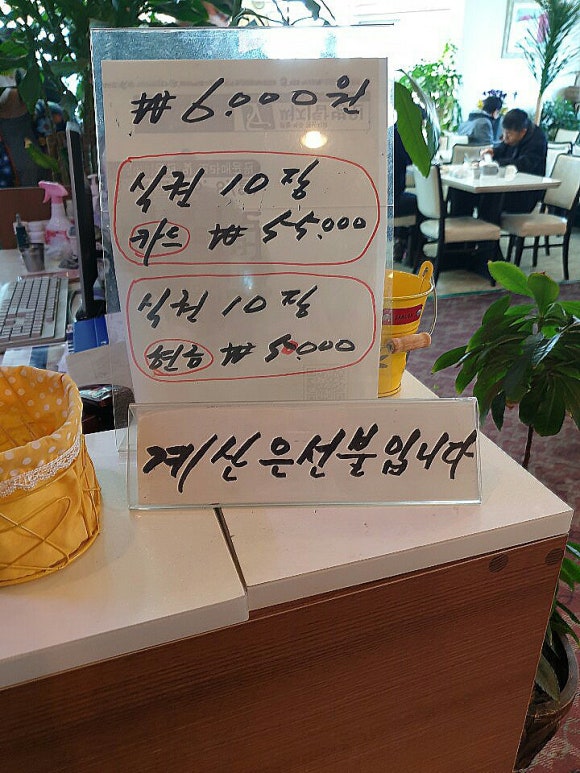 ₩6.000원
식권 10
카드 ₩55.000
식권 10
현금 ₩50.000
계산은선불입니다